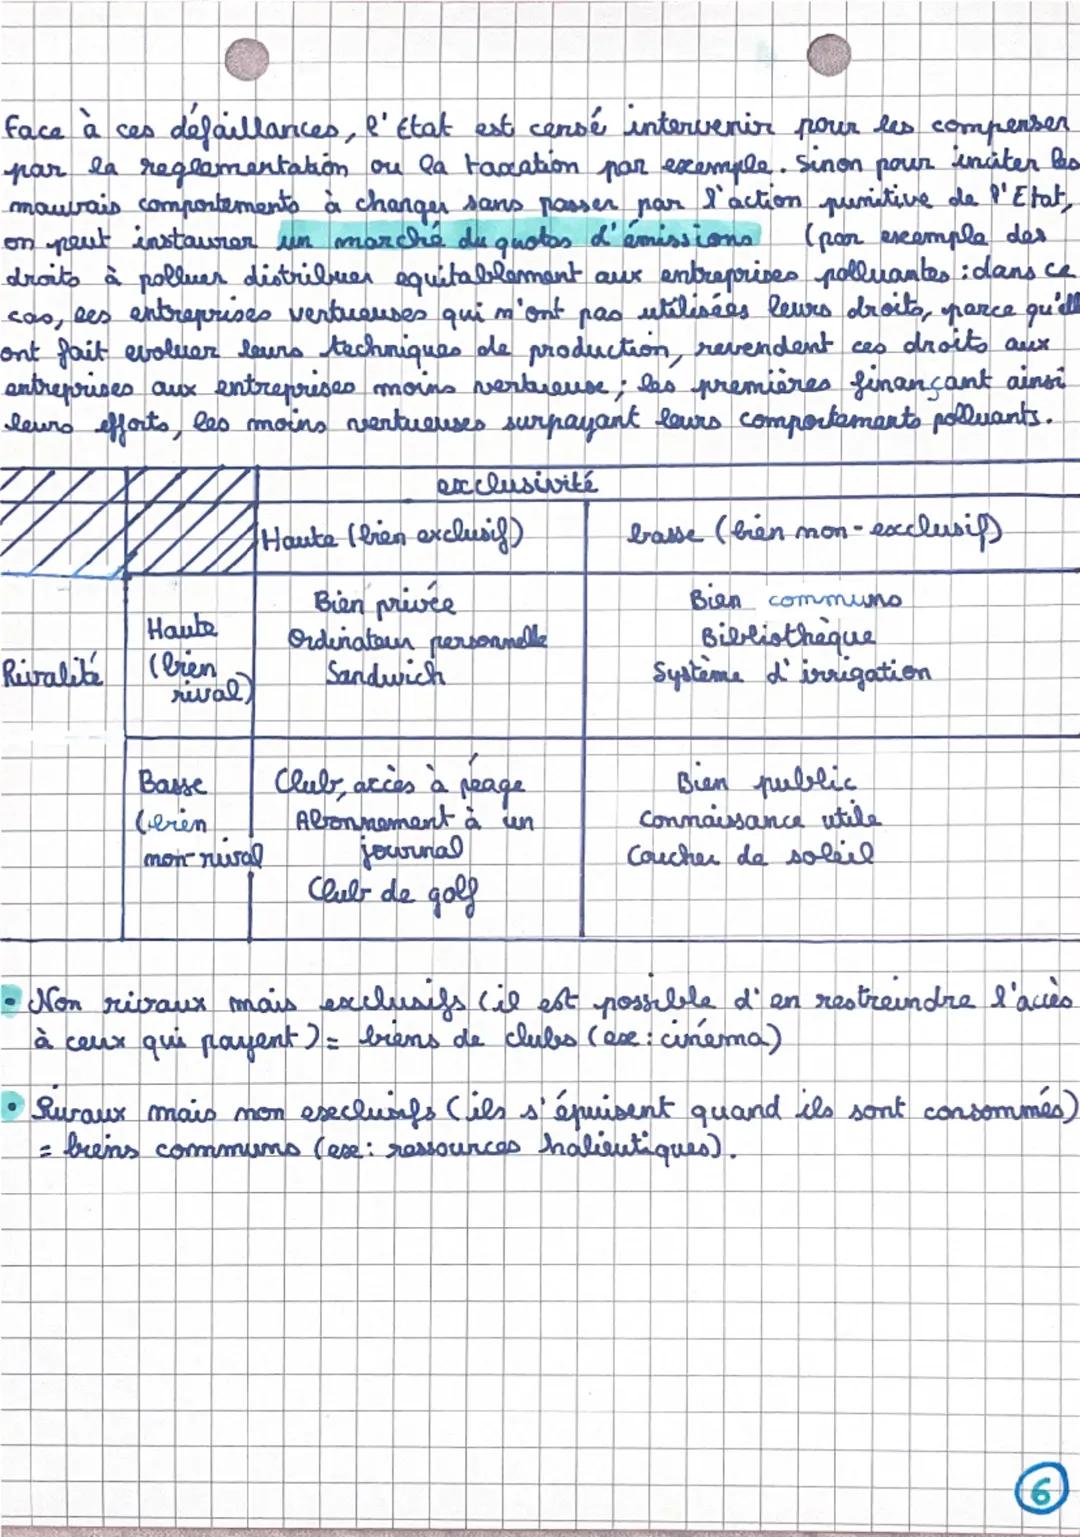 Face à ces défaillances, l'État est censé intervenir pour les compenser
par la reglementation ou la taxation par exemple. Sinon pour inciter les
mauvais comportements à changer sans passer par l'action punitive de l'Etat,
on peut instaurer un marché du quotas d'émissions (par exemple des
droits à polluer distribuer equitablement aux entreprises polluantes : dans ce
cas, les entreprises vertueuses qui n'ont pas utilisées leurs droits, parce qu'elle
ont fait evoluer leurs techniques de production, revendent ces droits aux
entreprises aux entreprises moins vertueuse ; les premières finançant ainsi
leurs efforts, les moins vertueuses surpayant leurs comportements polluants.
exclusivité
Haute (bien exclusif)
basse (bien non-exclusif)
Rivalité
Haute
(bien
rival)
Bien privée
Ordinateur personnelle
Sandwich
Bien communs
Bibliothèque
Système d'irrigation
Basse
(bien
non-rival
Club, accès à péage
Abonnement à un
journal
Club de golf
Bien public
Connaissance utile
Coucher de soleil
• Non rivaux mais exclusifs (il est possible d'en restreindre l'accès
à ceux qui payent) = biens de clubs (exe : cinéma)
• Rivaux mais non execlusifs (ils s'épuisent quand ils sont consommés)
= biens communs (exe : ressources halieutiques).
6